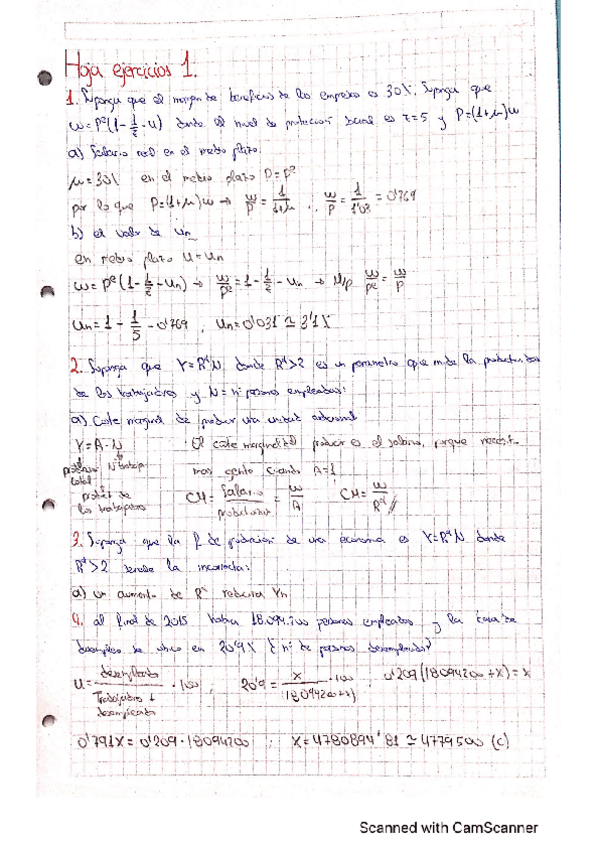 Hoja ejercicios 1.
1. Suponga que el margen de beneficios de las empresas es 30%. Suponga que
w = Pᵉ(1 - 1/z - u) donde el nivel de protección social es z=5 y P=(1+μ)w
a) Salario real en el medio plazo.
μ=30% en el medio plazo P=Pᵉ
por lo que P=(1+μ)w → w/P = 1/(1+μ) ; w/P = 1/1'03 = 0'769
b) el valor de un
en medio plazo u=un
w=Pᵉ(1 - 1/z - un) → w/Pᵉ = 1 - 1/z - un → M/p w/Pᵉ = w/P
un = 1 - 1/5 - 0'769 , un=0'031 ≃ 3'1%
2. Suponga que Y=RᵈN, donde Rᵈ>2 es un parametro que mide la productividad
de los trabajadores y N=nº personas empleadas:
a) Coste marginal de producir una unidad adicional
Y=A·N El coste marginal del producir es el salario, porque necesit-
total Nº trabaja mos gento cuando A=1
de
los trabajadores CM = Salario/productividad = w/A CM= w/Rᵈ
3. Suponga que la f de producción de una economia es Y=RᵈN donde
Rᵈ>2 señale la incorrecta:
a) un aumento de Rᵈ reducira Yn
4. al final de 2015 habia 18.094.200 personas empleadas y la tasa de
desempleo se ubico en 20'9% ¿nº de personas desempleadas?
u = desempleados/(Trabajadores + desempleados) · 100 ; 20'9 = x/(18094200+x) · 100 ; 0'209(18094200+x)=x
0'791x=0'209·18094200 ; x=4780894'81 ≃ 4779500 (c)
Scanned with CamScanner